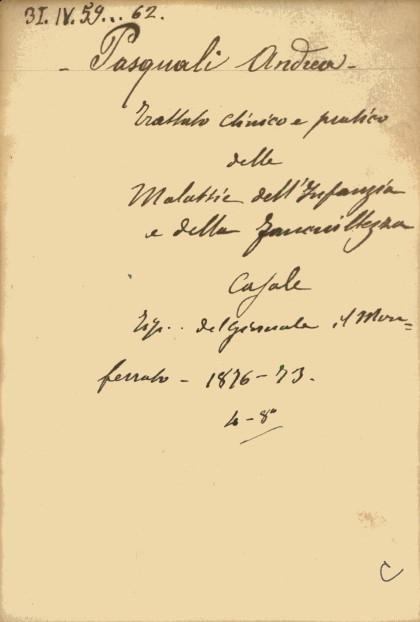 31. IV. 59... 62.
- Pasquali Andrea -
Trattato clinico e pratico
delle
Malattie dell'Infanzia
e della Fanciullezza
Casale
Tip. del Giornale il Mon=
ferrato - 1876-73.
4 - 8°
C